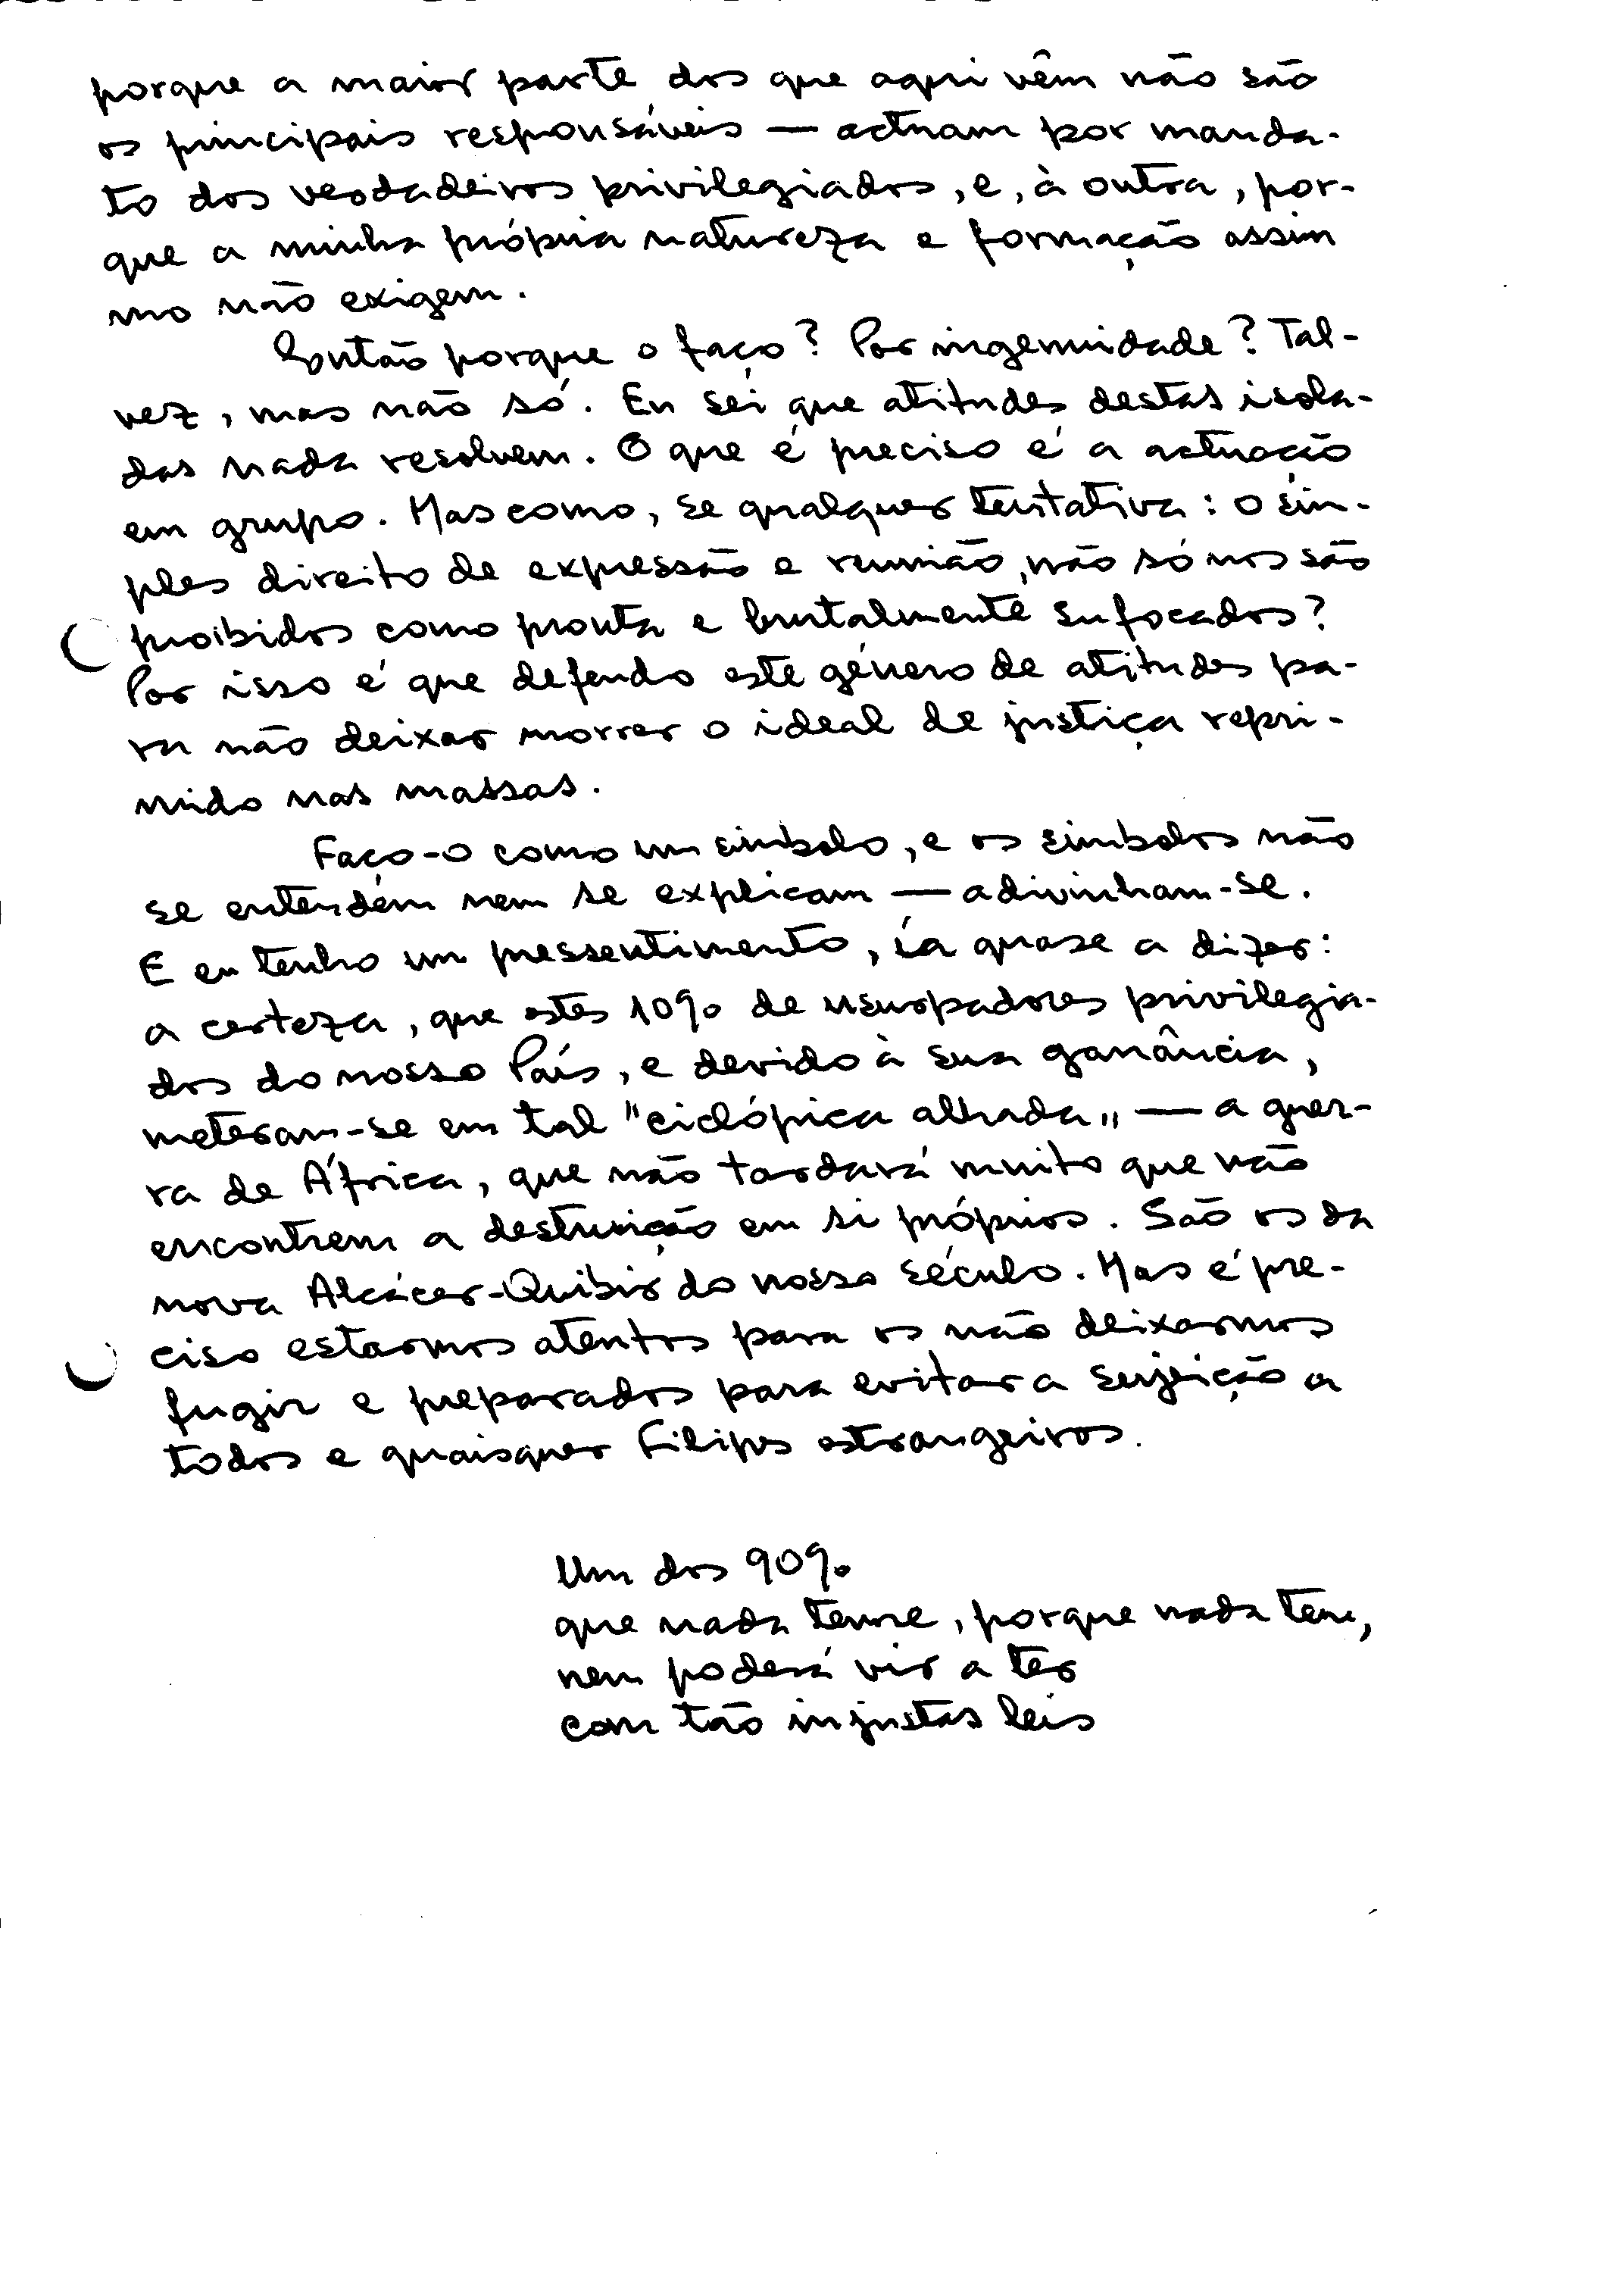 porque a maior parte dos que aqui vêm não são
os principais responsáveis — actuam por manda-
to dos verdadeiros privilegiados, e, à outra, por-
que a minha própria natureza e formação assim
mo não exigem.
Então porque o faço? Por ingenuidade? Tal-
vez, mas não só. Eu sei que atitudes destas isola-
das nada resolvem. O que é preciso é a actuação
em grupo. Mas como, se qualquer tentativa: o sim-
ples direito de expressão e reunião, não só nos são
proibidos como pronta e brutalmente sufocados?
Por isso é que defendo este género de atitudes pa-
ra não deixar morrer o ideal de justiça repri-
mido nas massas.
Faço-o como um simbolo, e os simbolos não
se entendem nem se explicam — adivinham-se.
E eu tenho um pressentimento, ía quase a dizer:
a certeza, que estes 10% de usurpadores privilegia-
dos do nosso País, e devido à sua ganância,
meteram-se em tal "ciclópica alhada" — a guer-
ra de África, que não tardará muito que não
encontrem a destruição em si próprios. São os da
nova Alcácer-Quibir do nosso século. Mas é pre-
ciso estarmos atentos para os não deixarmos
fugir e preparados para evitar a sujeição a
todos e quaisquer Filipes estrangeiros.
Um dos 90%
que nada teme, porque nada tem,
nem poderá vir a ter
com tão injustas leis